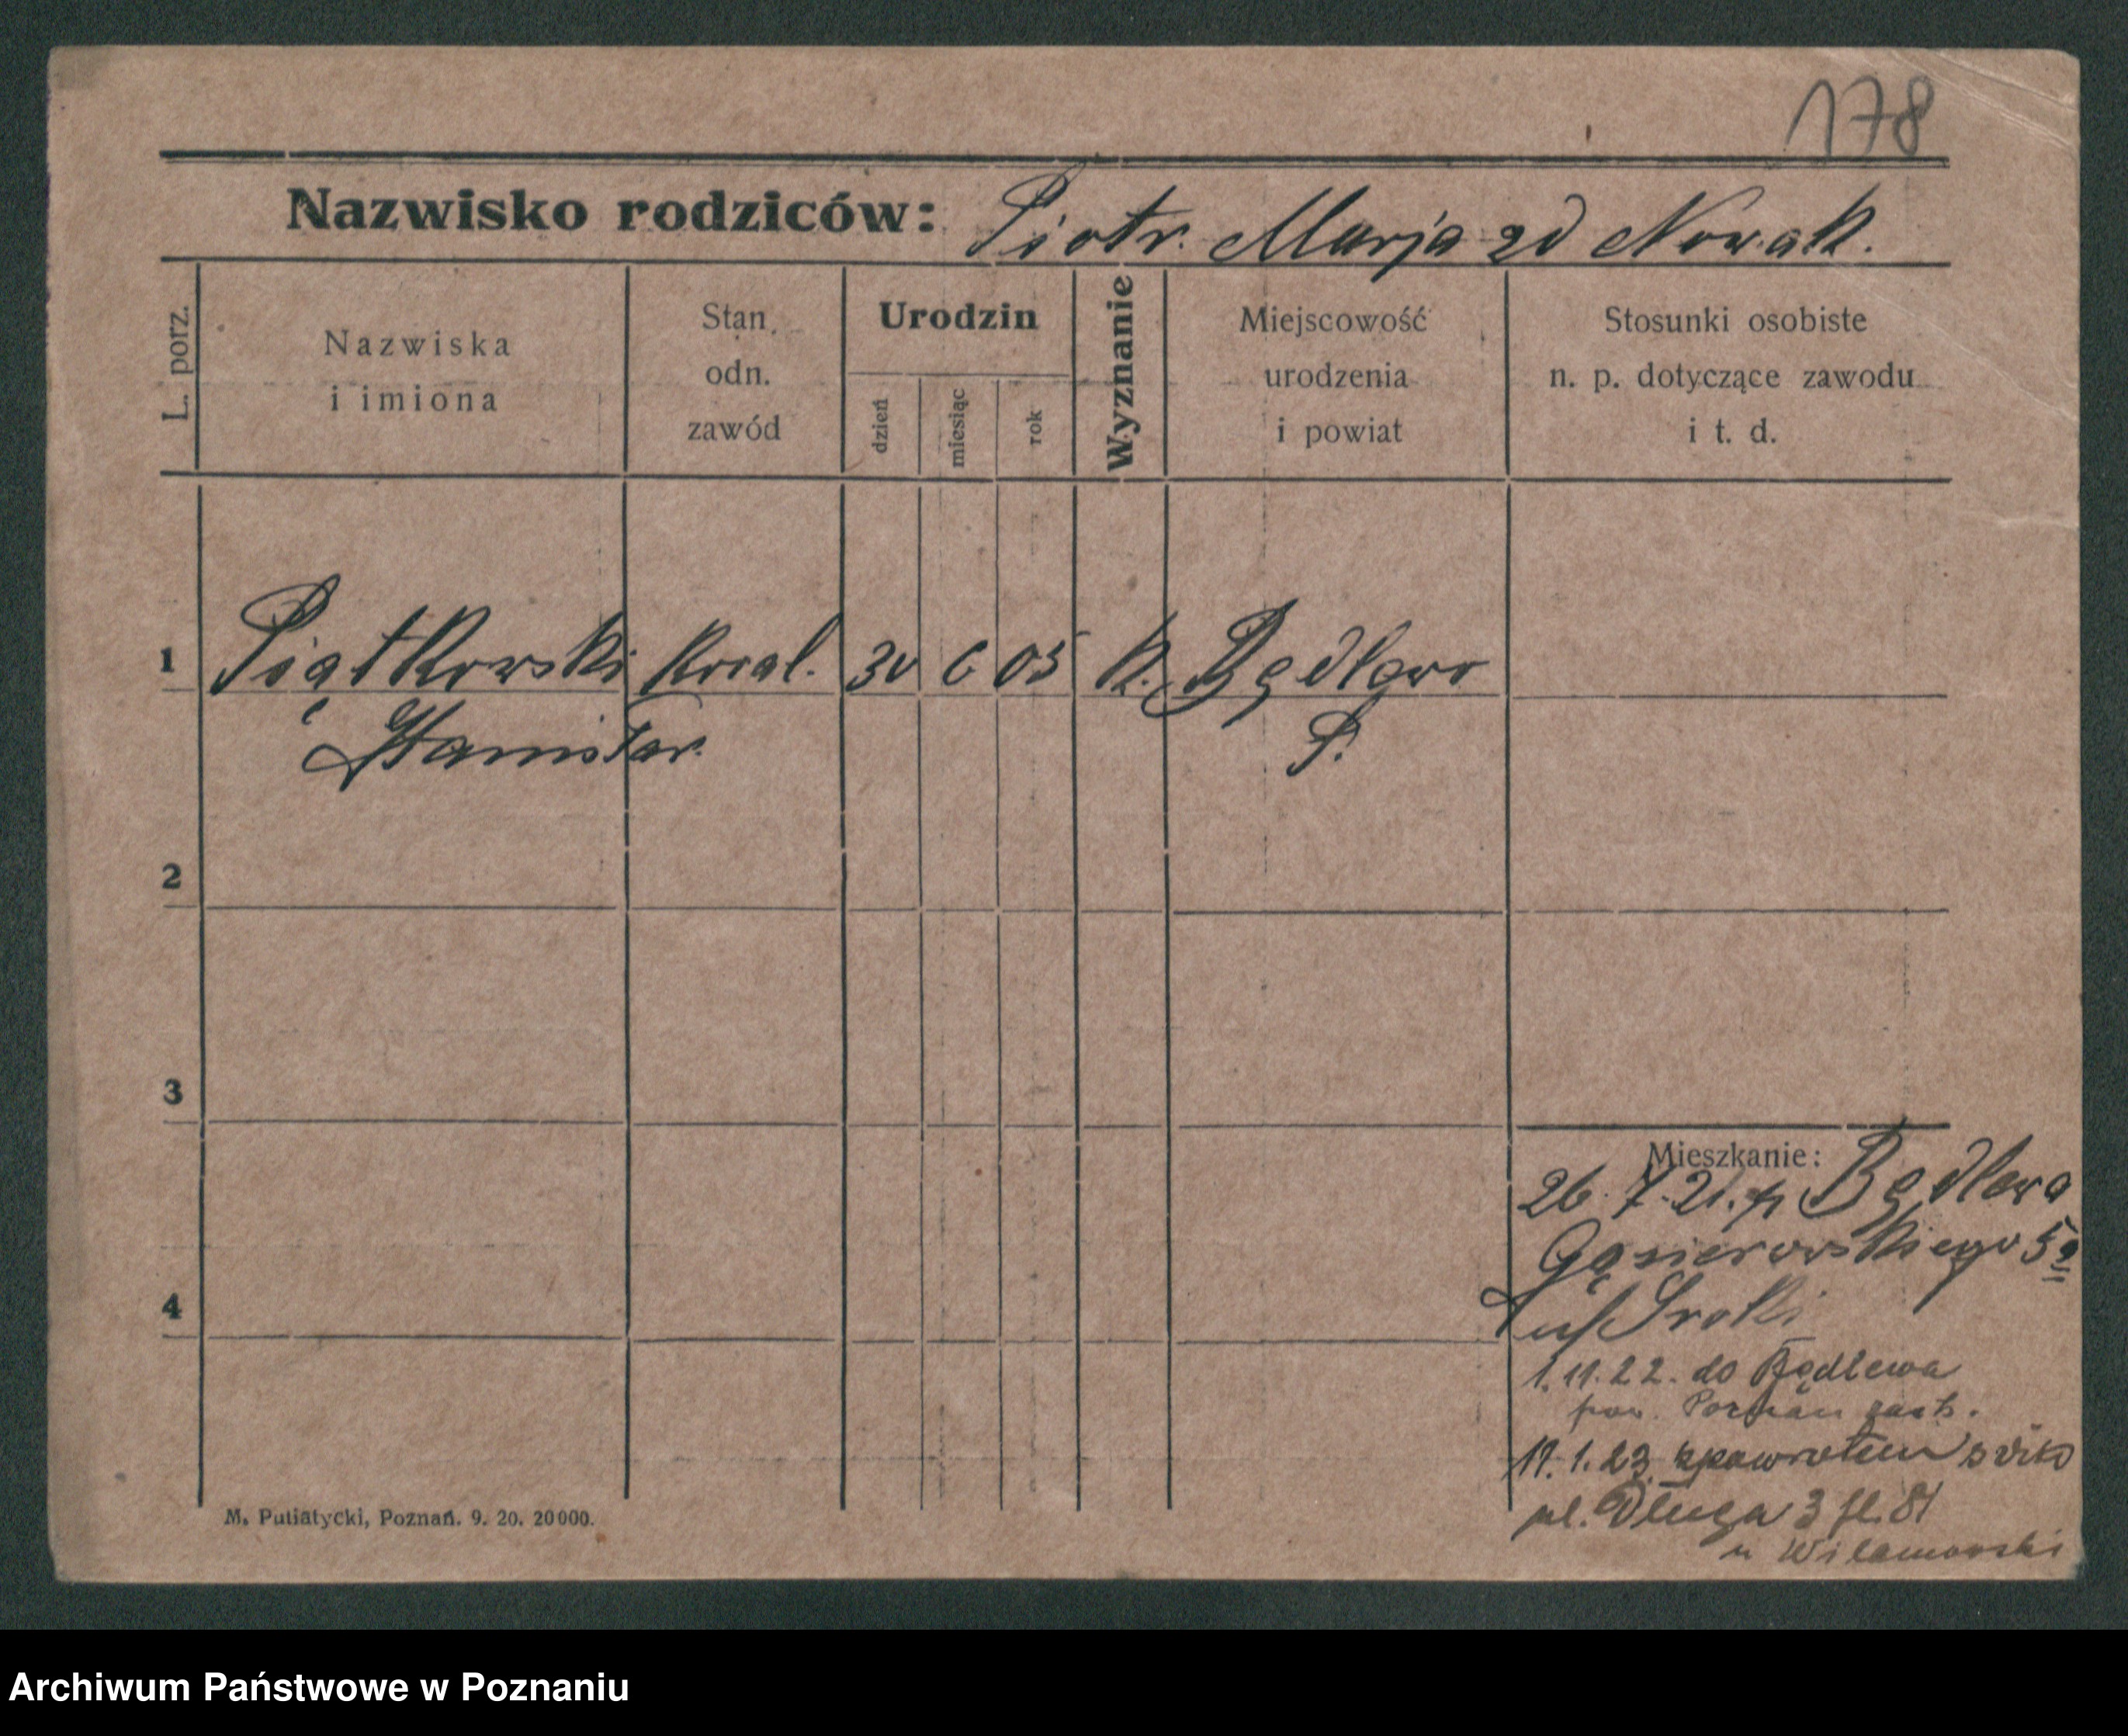 178
Nazwisko rodziców: Piotr. Marja zd Nowak.
L. porz.
Nazwiska
i imiona
Stan.
odn.
zawód
Urodzin
dzień
miesiąc
rok
Wyznanie
Miejscowość
urodzenia
i powiat
Stosunki osobiste
n. p. dotyczące zawodu
i t. d.
1 Piątkowski 30 6 05 k. Będlewo
Stanisław. P.
2
3
4
Mieszkanie:
26.7.21. Będlewa
Gąsierowskiego 5a
Sroki
1.11.22. do Będlewa
pow. Poznań zach.
17.1.23. zpowrotem
ul. Długa 3
u Wilamowski
M. Putiatycki, Poznań. 9. 20. 20000.
Archiwum Państwowe w Poznaniu